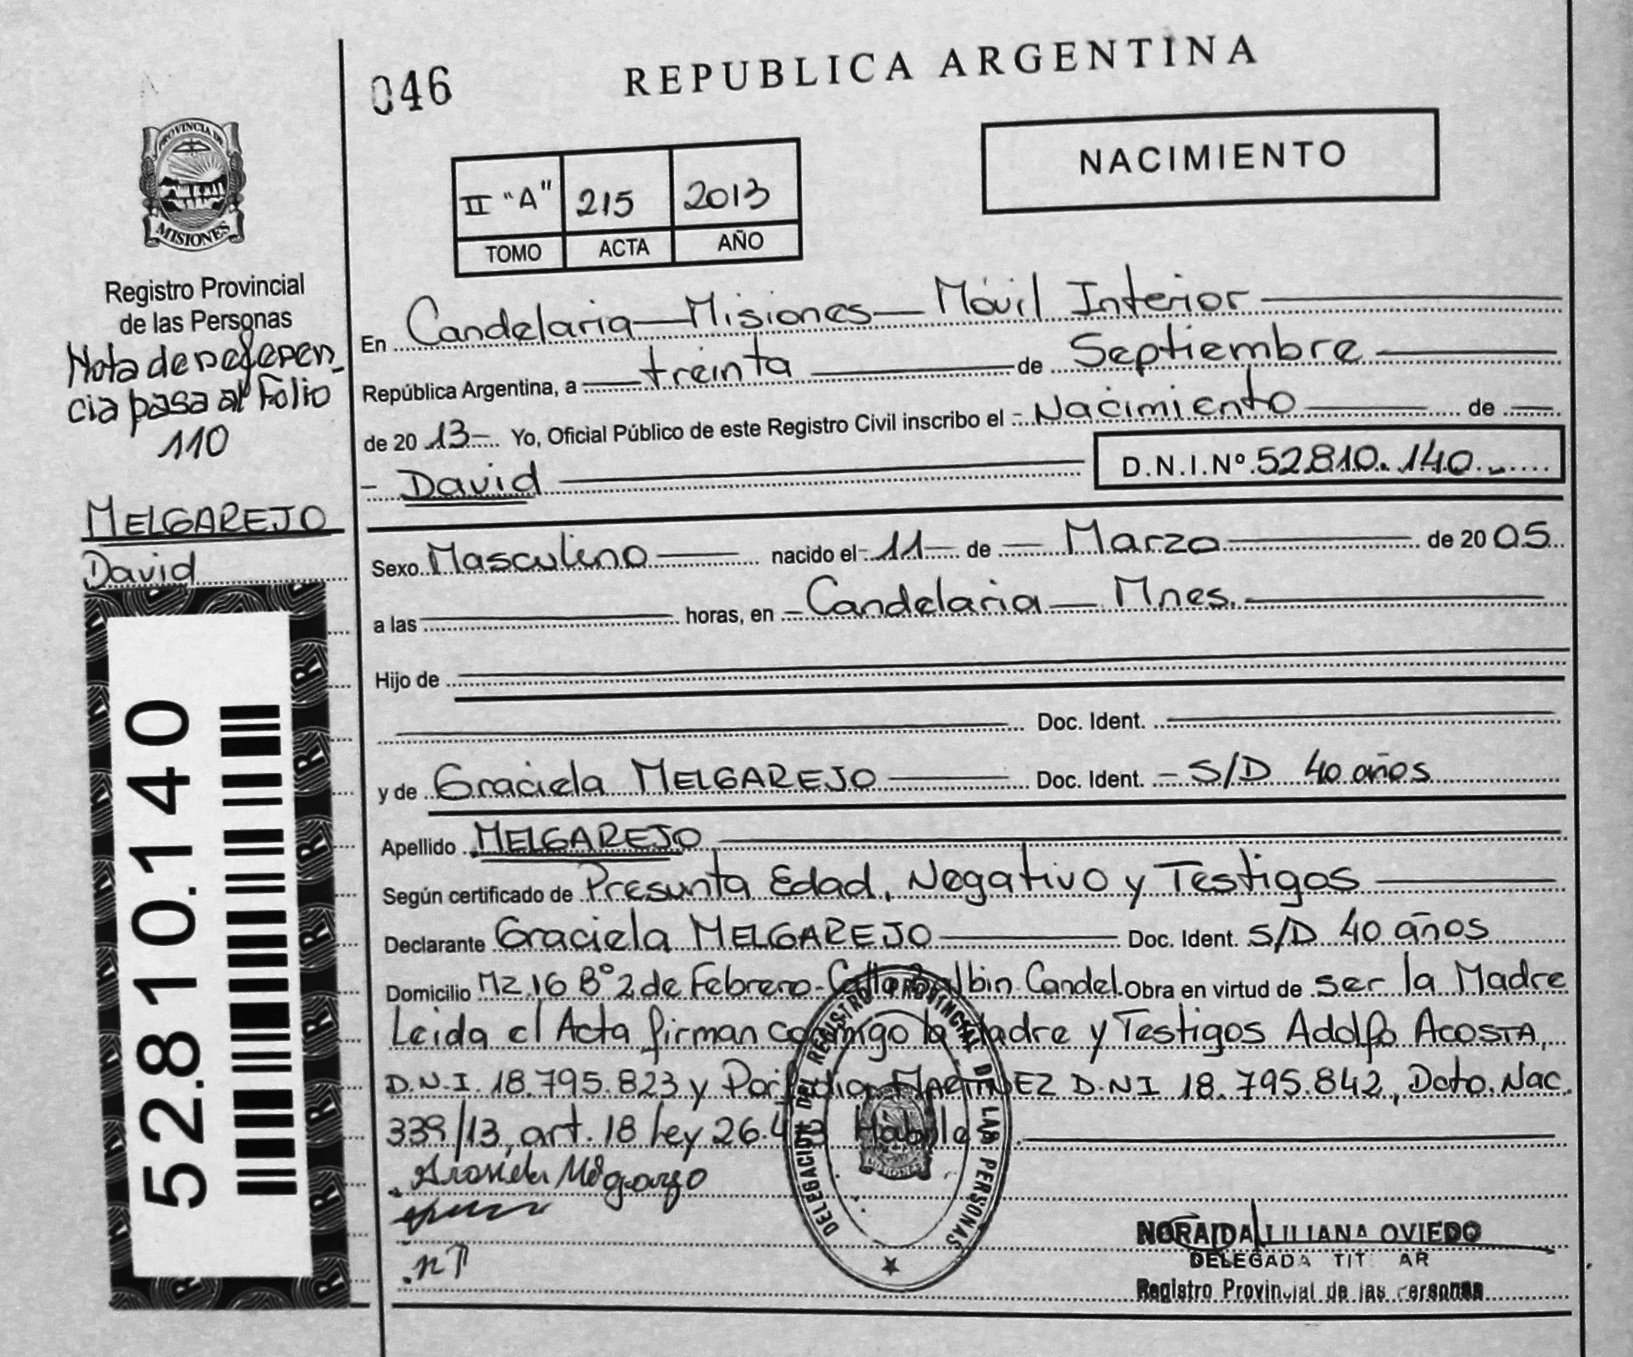 046
REPUBLICA ARGENTINA
NACIMIENTO
II "A" 215 2013
TOMO ACTA AÑO
PROVINCIA DE
MISIONES
Registro Provincial
de las Personas
Nota de referen_
cia pasa al Folio
110
MELGAREJO
David
52.810.140
En Candelaria - Misiones - Móvil Interior
República Argentina, a treinta de Septiembre
de 20 13 - Yo, Oficial Público de este Registro Civil inscribo el - Nacimiento de
- David D.N.I.Nº 52.810.140
Sexo Masculino nacido el - 11 - de - Marzo de 20 05
a las horas, en - Candelaria - Mnes.
Hijo de
Doc. Ident.
y de Graciela MELGAREJO Doc. Ident. - S/D 40 años
Apellido MELGAREJO
Según certificado de Presunta Edad, Negativo y Testigos
Declarante Graciela MELGAREJO Doc. Ident. S/D 40 años
Domicilio Mz.16 Bº 2 de Febrero - Calle Balbin Candel. Obra en virtud de ser la Madre
Leida el Acta firman conmigo la Madre y Testigos Adolfo ACOSTA,
D.N.I. 18.795.823 y MARTINEZ D.N.I 18.795.842, Dcto. Nac.
339/13, art. 18 Ley 26.413 Habiles.
DELEGACION DEL REGISTRO PROVINCIAL DE LAS PERSONAS
MISIONES
NORAIDA LILIANA OVIEDO
DELEGADA TIT AR
Registro Provincial de las Personas